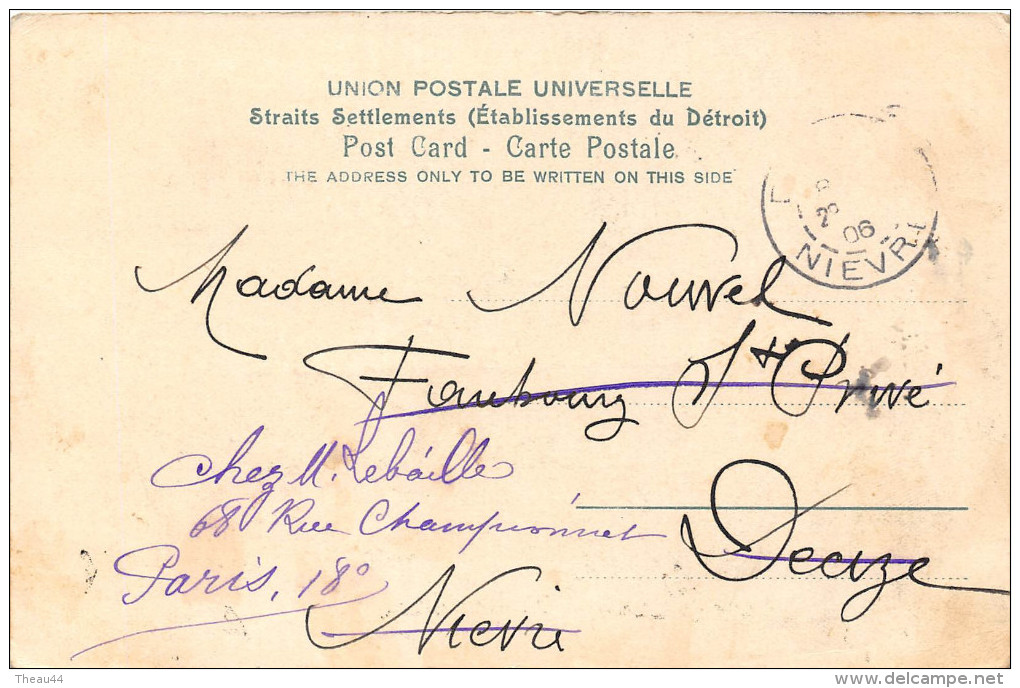 UNION POSTALE UNIVERSELLE
Straits Settlements (Établissements du Détroit)
Post Card - Carte Postale
THE ADDRESS ONLY TO BE WRITTEN ON THIS SIDE
06
NIEVRE
Madame Nouvel
Faubourg St Privé
Chez M. Lebaille
68 Rue Championnet
Decize
Paris, 18º
Nièvre
Theau44
www.delcampe.net